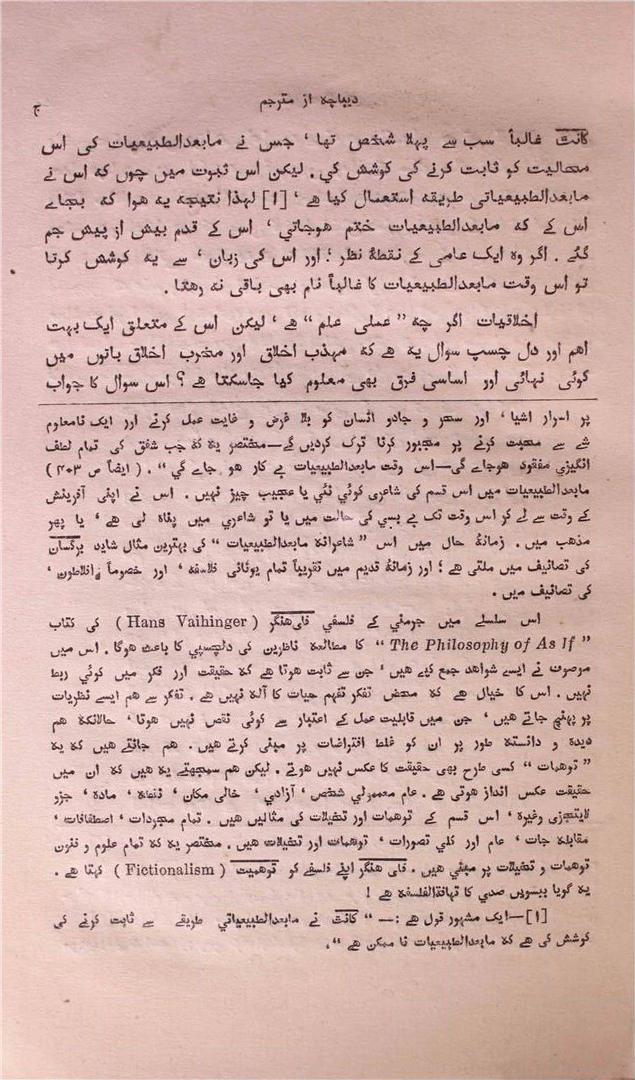 دیباچہ از مترجم
ج
کانٹ غالباً سب سے پہلا شخص تھا ، جس نے مابعدالطبیعیات کی اس
محالیت کو ثابت کرنے کی کوشش کی . لیکن اس ثبوت میں چوں کہ اس نے
مابعدالطبیعیاتی طریقہ استعمال کیا ہے ، [1] لہذا نتیجہ یہ ہوا کہ بجاے
اس کے کہ مابعدالطبیعیات ختم ہوجاتی ، اس کے قدم بیش از پیش جم
گئے . اگر وہ ایک عامی کے نقطۂ نظر ؛ اور اس کی زبان ، سے یہ کوشش کرتا
تو اس وقت مابعدالطبیعیات کا غالباً نام بھی باقی نہ رہتا .
اخلاقیات اگر چہ ”عملی علم“ ہے ، لیکن اس کے متعلق ایک بہت
اہم اور دل چسپ سوال یہ ہے کہ مہذب اخلاق اور مخرب اخلاق باتوں میں
کوئی نہائی اور اساسی فرق بھی معلوم کیا جاسکتا ہے ؟ اس سوال کا جواب
پر اسرار اشیا ، اور سحر و جادو انسان کو بلا غرض و غایت عمل کرنے اور ایک نامعلوم
شے سے محبت کرنے پر مجبور کرنا ترک کردیں گے—مختصر یہ کہ جب شفق کی تمام لطف
انگیزی مفقود ہوجاے گی—اس وقت مابعدالطبیعیات بے کار ہو جاے گی“ . ( ایضاً ص ۴۰۳ )
مابعدالطبیعیات میں اس قسم کی شاعری کوئی نئی یا عجیب چیز نہیں . اس نے اپنی آفرینش
کے وقت سے لے کر اس وقت تک بے بسی کی حالت میں یا تو شاعری میں پناہ لی ہے ، یا پھر
مذہب میں . زمانۂ حال میں اس ”شاعرانہ مابعدالطبیعیات“ کی بہترین مثال شاید برگسان
کی تصانیف میں ملتی ہے ؛ اور زمانۂ قدیم میں تقریباً تمام یونانی فلاسفہ ، اور خصوصاً افلاطون ،
کی تصانیف میں .
اس سلسلے میں جرمنی کے فلسفی فائ ہنگر ( Hans Vaihinger ) کی کتاب
”The Philosophy of As If“ کا مطالعہ ناظرین کی دلچسپی کا باعث ہوگا . اس میں
موصوف نے ایسے شواہد جمع کیے ہیں ، جن سے ثابت ہوتا ہے کہ حقیقت اور فکر میں کوئی ربط
نہیں . اس کا خیال ہے کہ محض تفکر تفہم حیات کا آلہ نہیں ہے . تفکر سے ہم ایسے نظریات
پر پہنچ جاتے ہیں ، جن میں قابلیت عمل کے اعتبار سے کوئی نقص نہیں ہوتا ، حالانکہ ہم
دیدہ و دانستہ طور پر ان کو غلط افتراضات پر مبنی کرتے ہیں . ہم جانتے ہیں کہ یہ
”توہمات“ کسی طرح بھی حقیقت کا عکس نہیں ہوتے . لیکن ہم سمجھتے یہ ہیں کہ ان میں
حقیقت عکس انداز ہوتی ہے . عام معمولی شخص ، آزادی ، خالی مکان ، نقطہ ، مادہ ، جزو
لایتجزی وغیرہ ، اس قسم کے توہمات اور تخیلات کی مثالیں ہیں . تمام مجردات ، اصطفافات ،
مقابلہ جات ، عام اور کلی تصورات ، توہمات اور تخیلات ہیں . مختصر یہ کہ تمام علوم و فنون
توہمات و تخیلات پر مبنی ہیں . فائ ہنگر اپنے فلسفے کو توہمیت ( Fictionalism ) کہتا ہے .
یہ گویا بیسویں صدی کا تہافۃالفلسفہ ہے !
[1]—ایک مشہور قول ہے :— ”کانٹ نے مابعدالطبیعیاتی طریقے سے ثابت کرنے کی
کوشش کی ہے کہ مابعدالطبیعیات نا ممکن ہے“ .